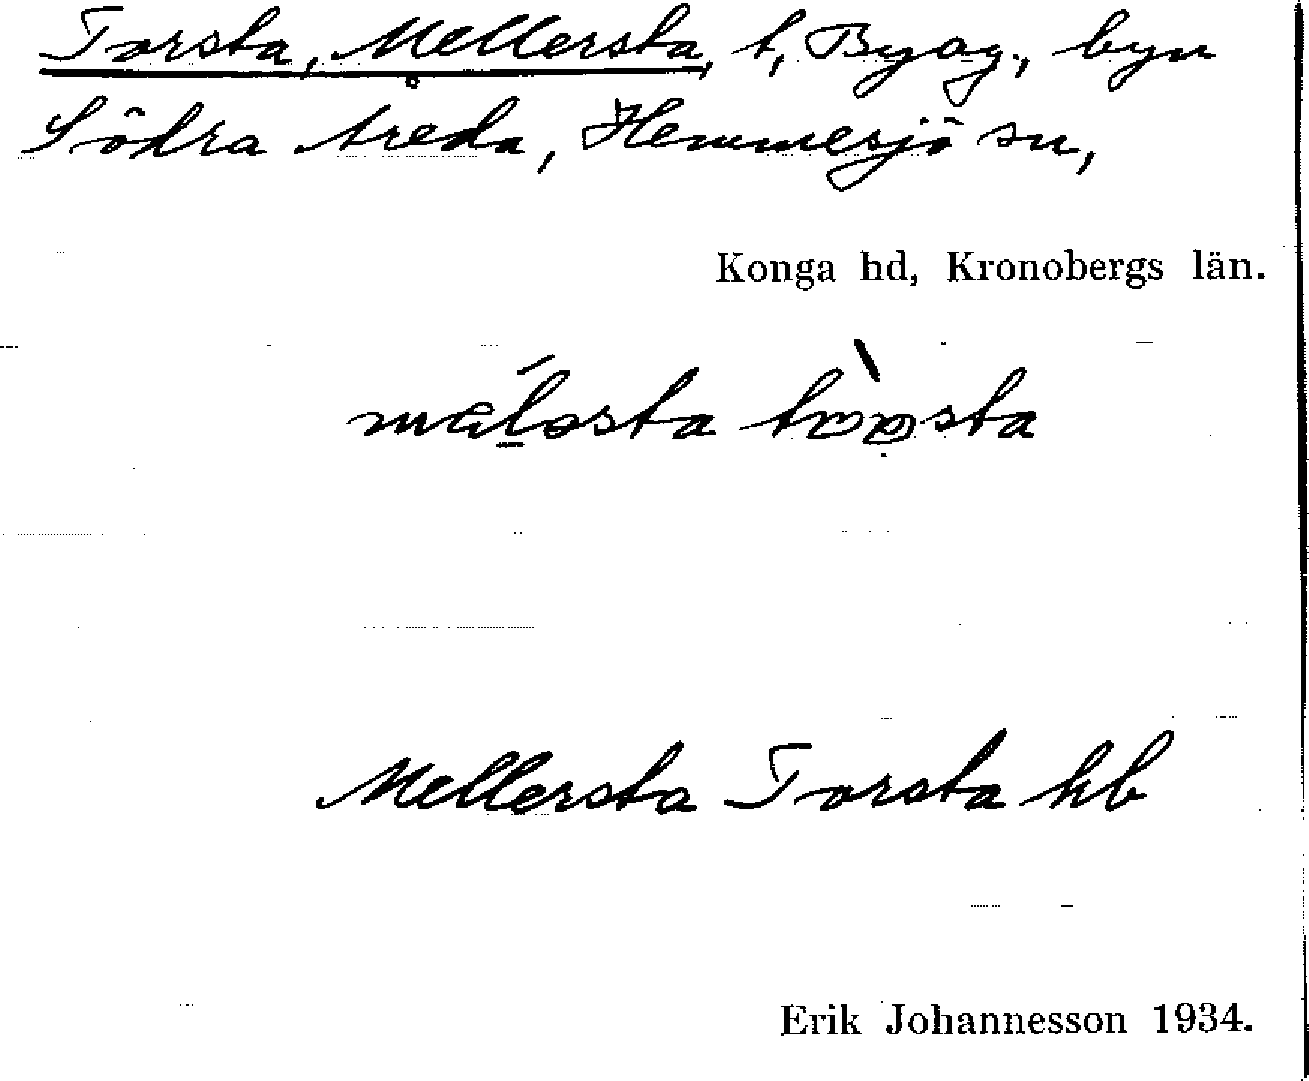 Torsta, Mellersta, t, Bygg., byn
Södra Åreda, Hemmesjö sn,
Konga hd, Kronobergs län.
Mellersta Torsta hb
Erik Johannesson 1934.